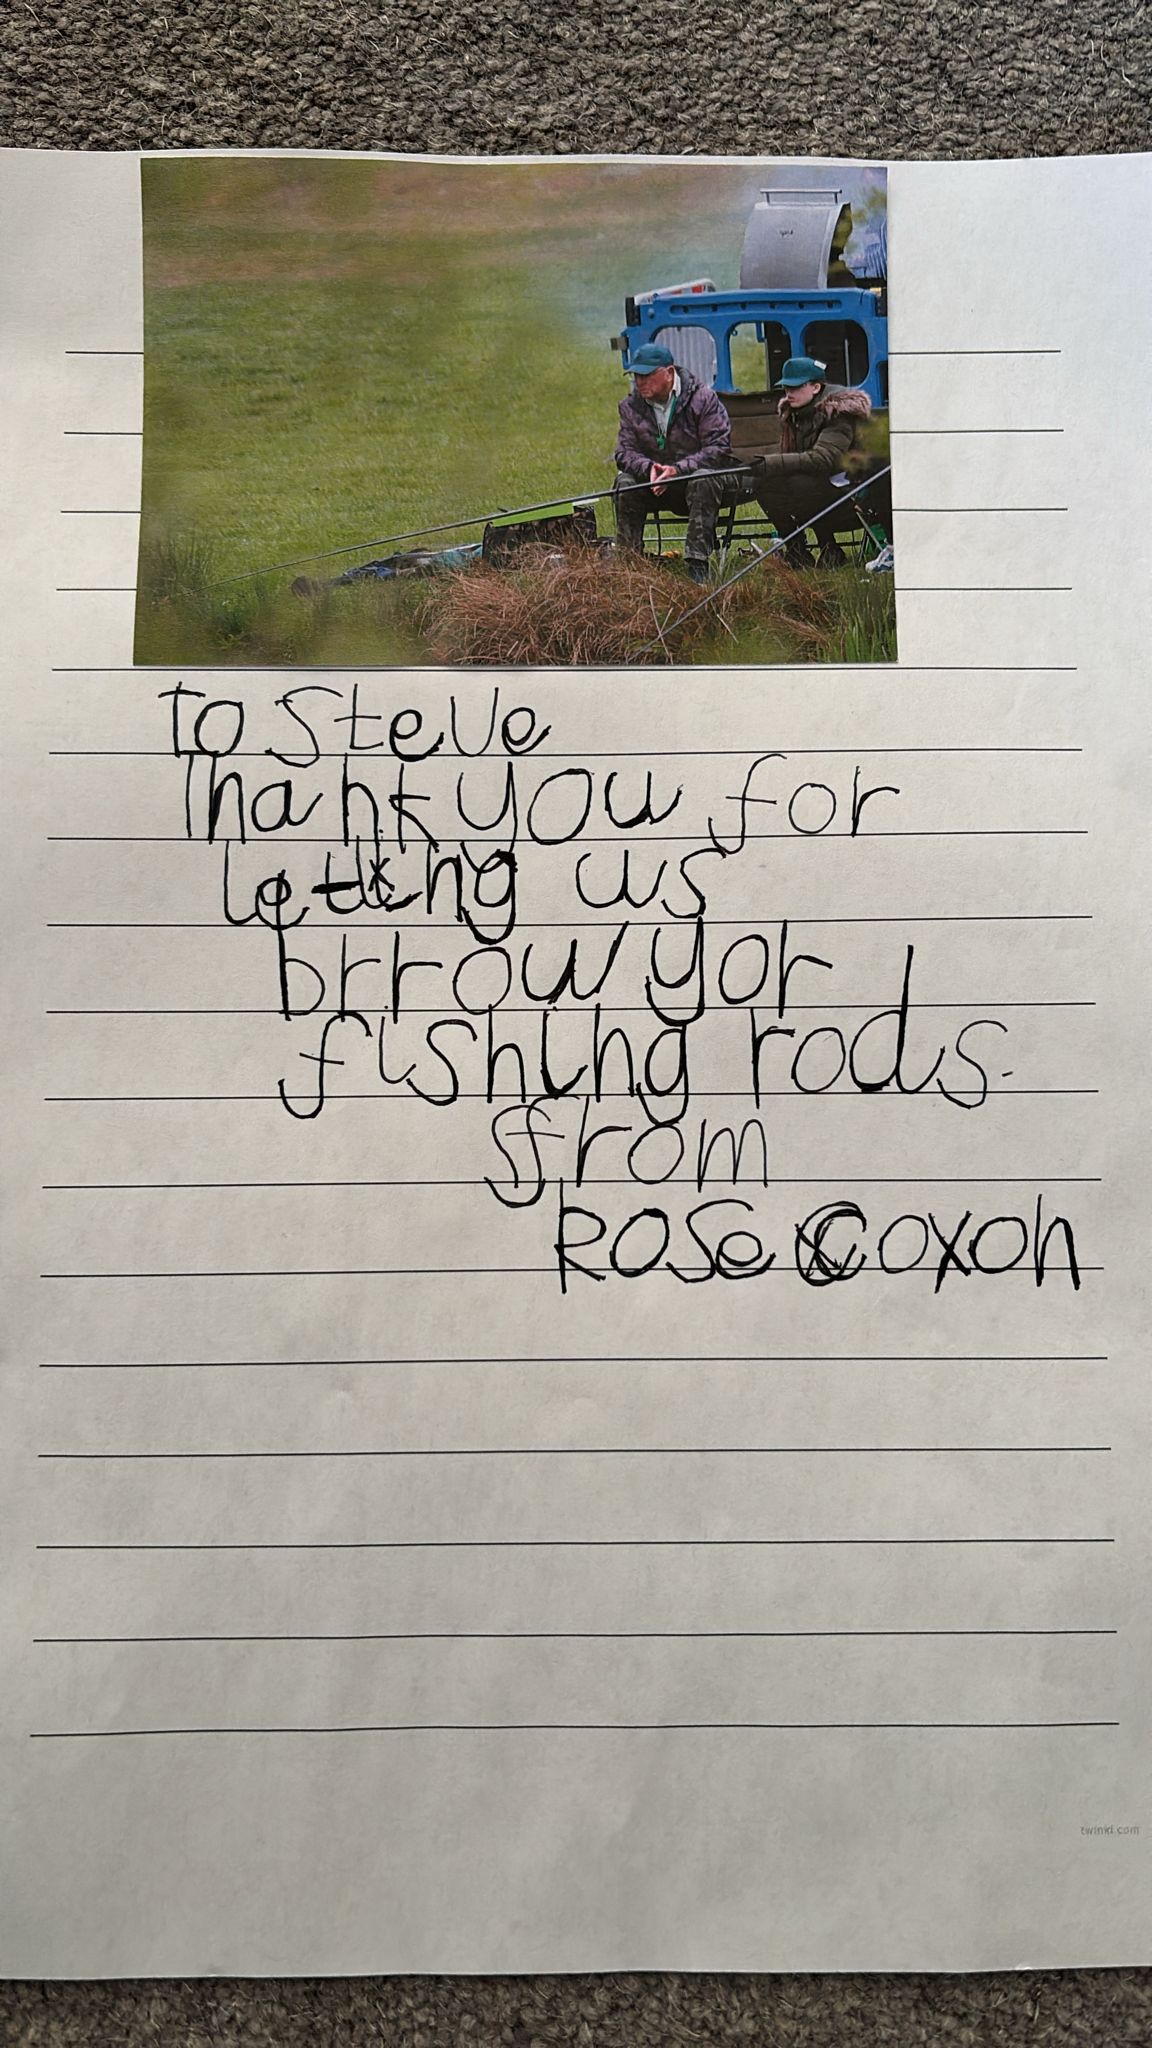 To Steve
Thank you for
letting us
brrow yor
fishing rods.
from
Rose Coxon
twinkl.com